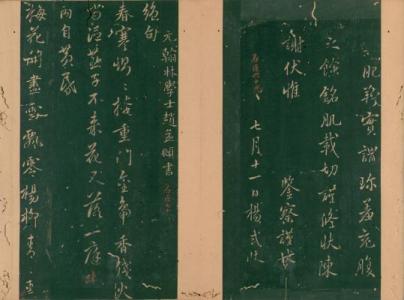 肥羜實謂珍羞充腹
之餘銘肌載切謹修狀陳
謝伏惟
鑒察謹狀
七月十一日
元翰林學士趙孟頫書
絕句
春寒惻惻掩重門金鴨香殘火
尚溫燕子不來花又落一庭
雨自黃昏
梅花開盡雪飄零楊柳青